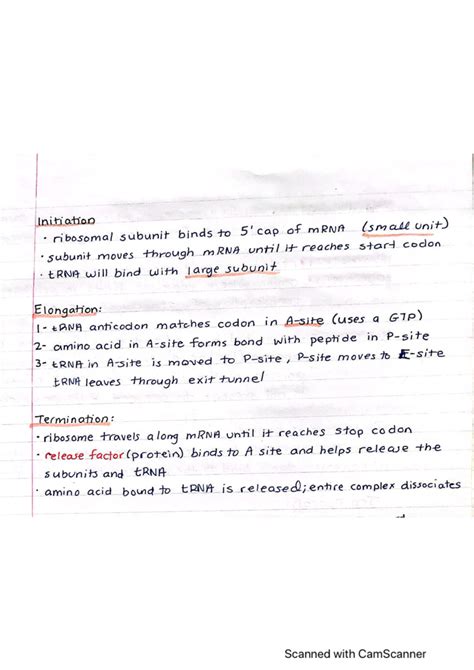 Initiation
· ribosomal subunit binds to 5' cap of mRNA (small unit)
· subunit moves through mRNA until it reaches start codon
· tRNA will bind with large subunit
Elongation:
1- tRNA anticodon matches codon in A-site (uses a GTP)
2- amino acid in A-site forms bond with peptide in P-site
3- tRNA in A-site is moved to P-site, P-site moves to E-site
tRNA leaves through exit tunnel
Termination:
· ribosome travels along mRNA until it reaches stop codon
· release factor (protein) binds to A site and helps release the
subunits and tRNA
· amino acid bound to tRNA is released; entire complex dissociates
Scanned with CamScanner